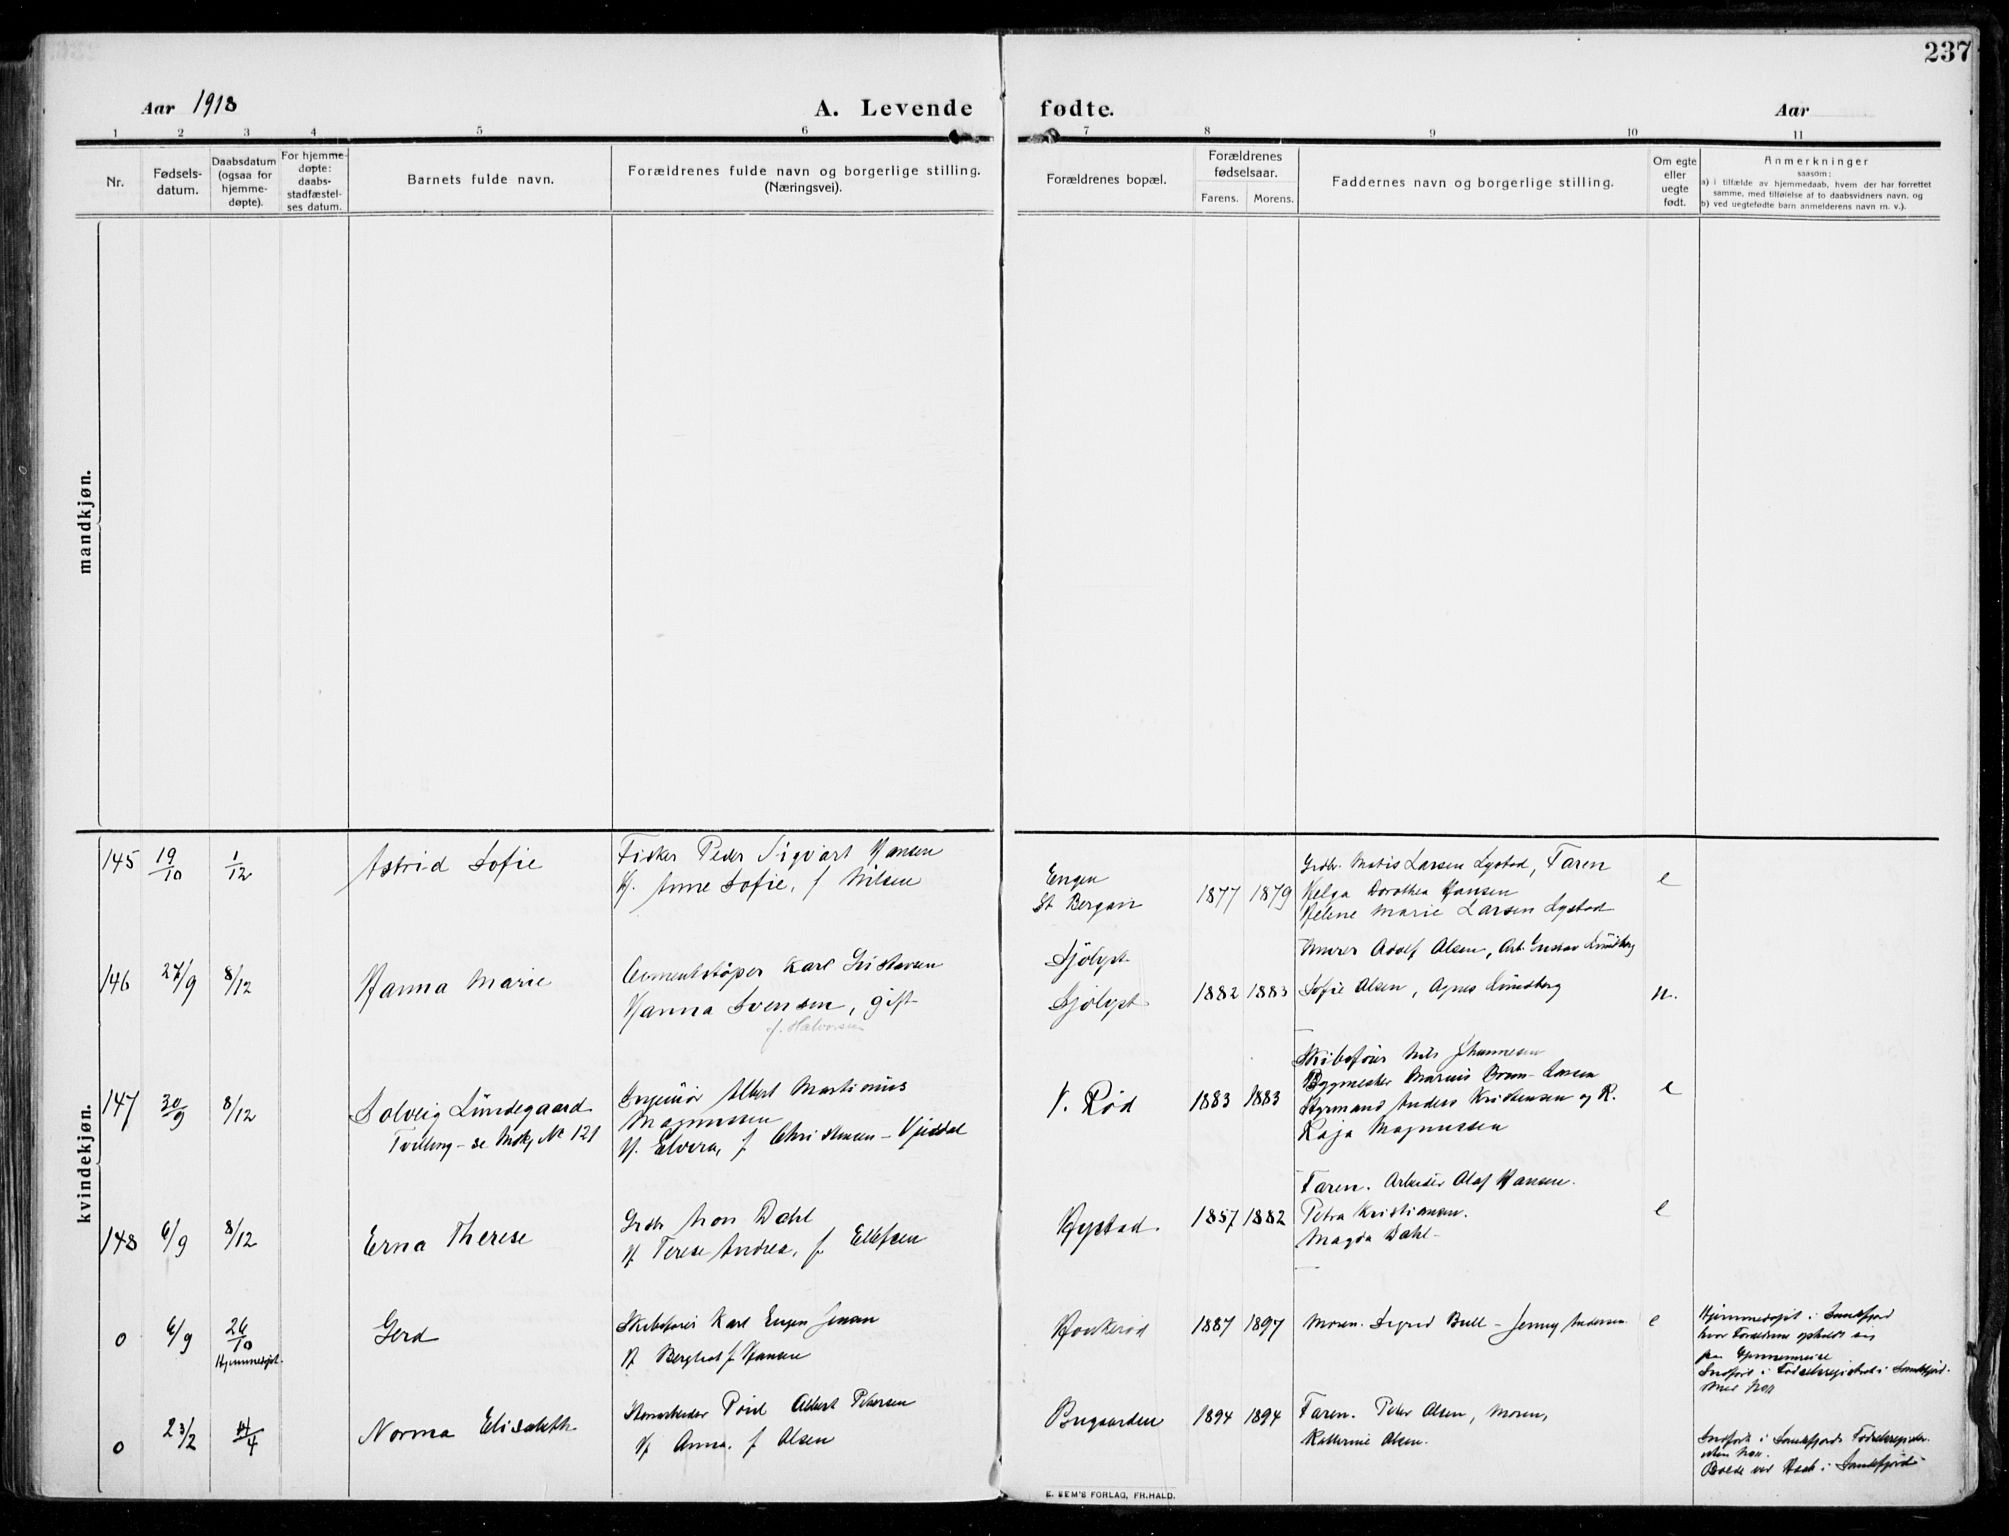 237
Aar 1918
A. Levende fødte.
Aar
1 2 3 4 5 6 7 8 9 10 11
Nr.
Fødsels-
datum.
Daabsdatum
(ogsaa for
hjemme-
døpte).
For hjemme-
døpte:
daabs-
stadfæstel-
ses datum.
Barnets fulde navn.
Forældrenes fulde navn og borgerlige stilling.
(Næringsvei).
Forældrenes bopæl.
Forældrenes
fødselsaar.
Farens. Morens.
Faddernes navn og borgerlige stilling.
Om egte
eller
uegte
født.
Anmerkninger
saasom:
a) i tilfælde av hjemmedaab, hvem der har forrettet
samme, med tilføielse af to daabsvidners navn, og
b) ved uegtefødte barn anmelderens navn m. v.).
mandkjøn.
kvindekjøn.
145 19/10 1/12
Astrid Sofie
Fisker Peder Sigvart Hansen
H. Anne Sofie, f Nilsen
Engen
St Bergan
1877 1879
Grdbr. Matis Larsen Lystad, Faren
Helga Dorothea Hansen
Helene Marie Larsen Lystad
e
146 27/9 8/12
Hanna Marie
Cementstøper Karl Gustavsen
Hanna Svensen, gift
f. Halvorsen
Sjölyst
Sjölyst
1882 1883
Murer Adolf Olsen, Arb. Gustav Lundberg
Sofie Olsen, Agnes Lundberg
u.
147 30/9 8/12
Solveig Lundegaard
Tvilling - se Mkj No 121
Ingeniør Albert Martinius
Magnussen
H. Elvera, f Christensen - Vjeddal
V. Rød
1883 1883
Skibsfører Nils Johannesen
Bygmester Marius Bruun-Larsen
Styrmand Anders Kristensen og R.
Kaja Magnussen
e
148 6/9 8/12
Erna Therese
Grdbr Aron Dahl
H Terese Andrea, f Ellefsen
Hystad.
1857 1882
Faren. Arbeider Olaf Hansen.
Petra Kristiansen.
Magda Dahl-
e
0 6/9 26/10
Hjemmedøpt.
Gerd
Skibsfører Karl Eugen Jensen
H Bergliot f Hansen
Haukerød
1887 1897
Moren. Sigrid Bull - Jenny Andersen
e
Hjemmedøpt i Sandefjord
hvor Forældrene opholdt sig
paa Gjennemreise
Indført i Fødselsregistret i Sandefjord.
0 23/2 14/4
Norma Elisabeth
Povel Albert Petersen
H Anna. f Olsen
Bugaarden
1894 1894
Faren. Peter Olsen, Moren,
Katherine Olsen.
Indført i Sandefjords Fødselsregister
uten No.
i Sandefjord
E. SEM'S FORLAG, FR.HALD.